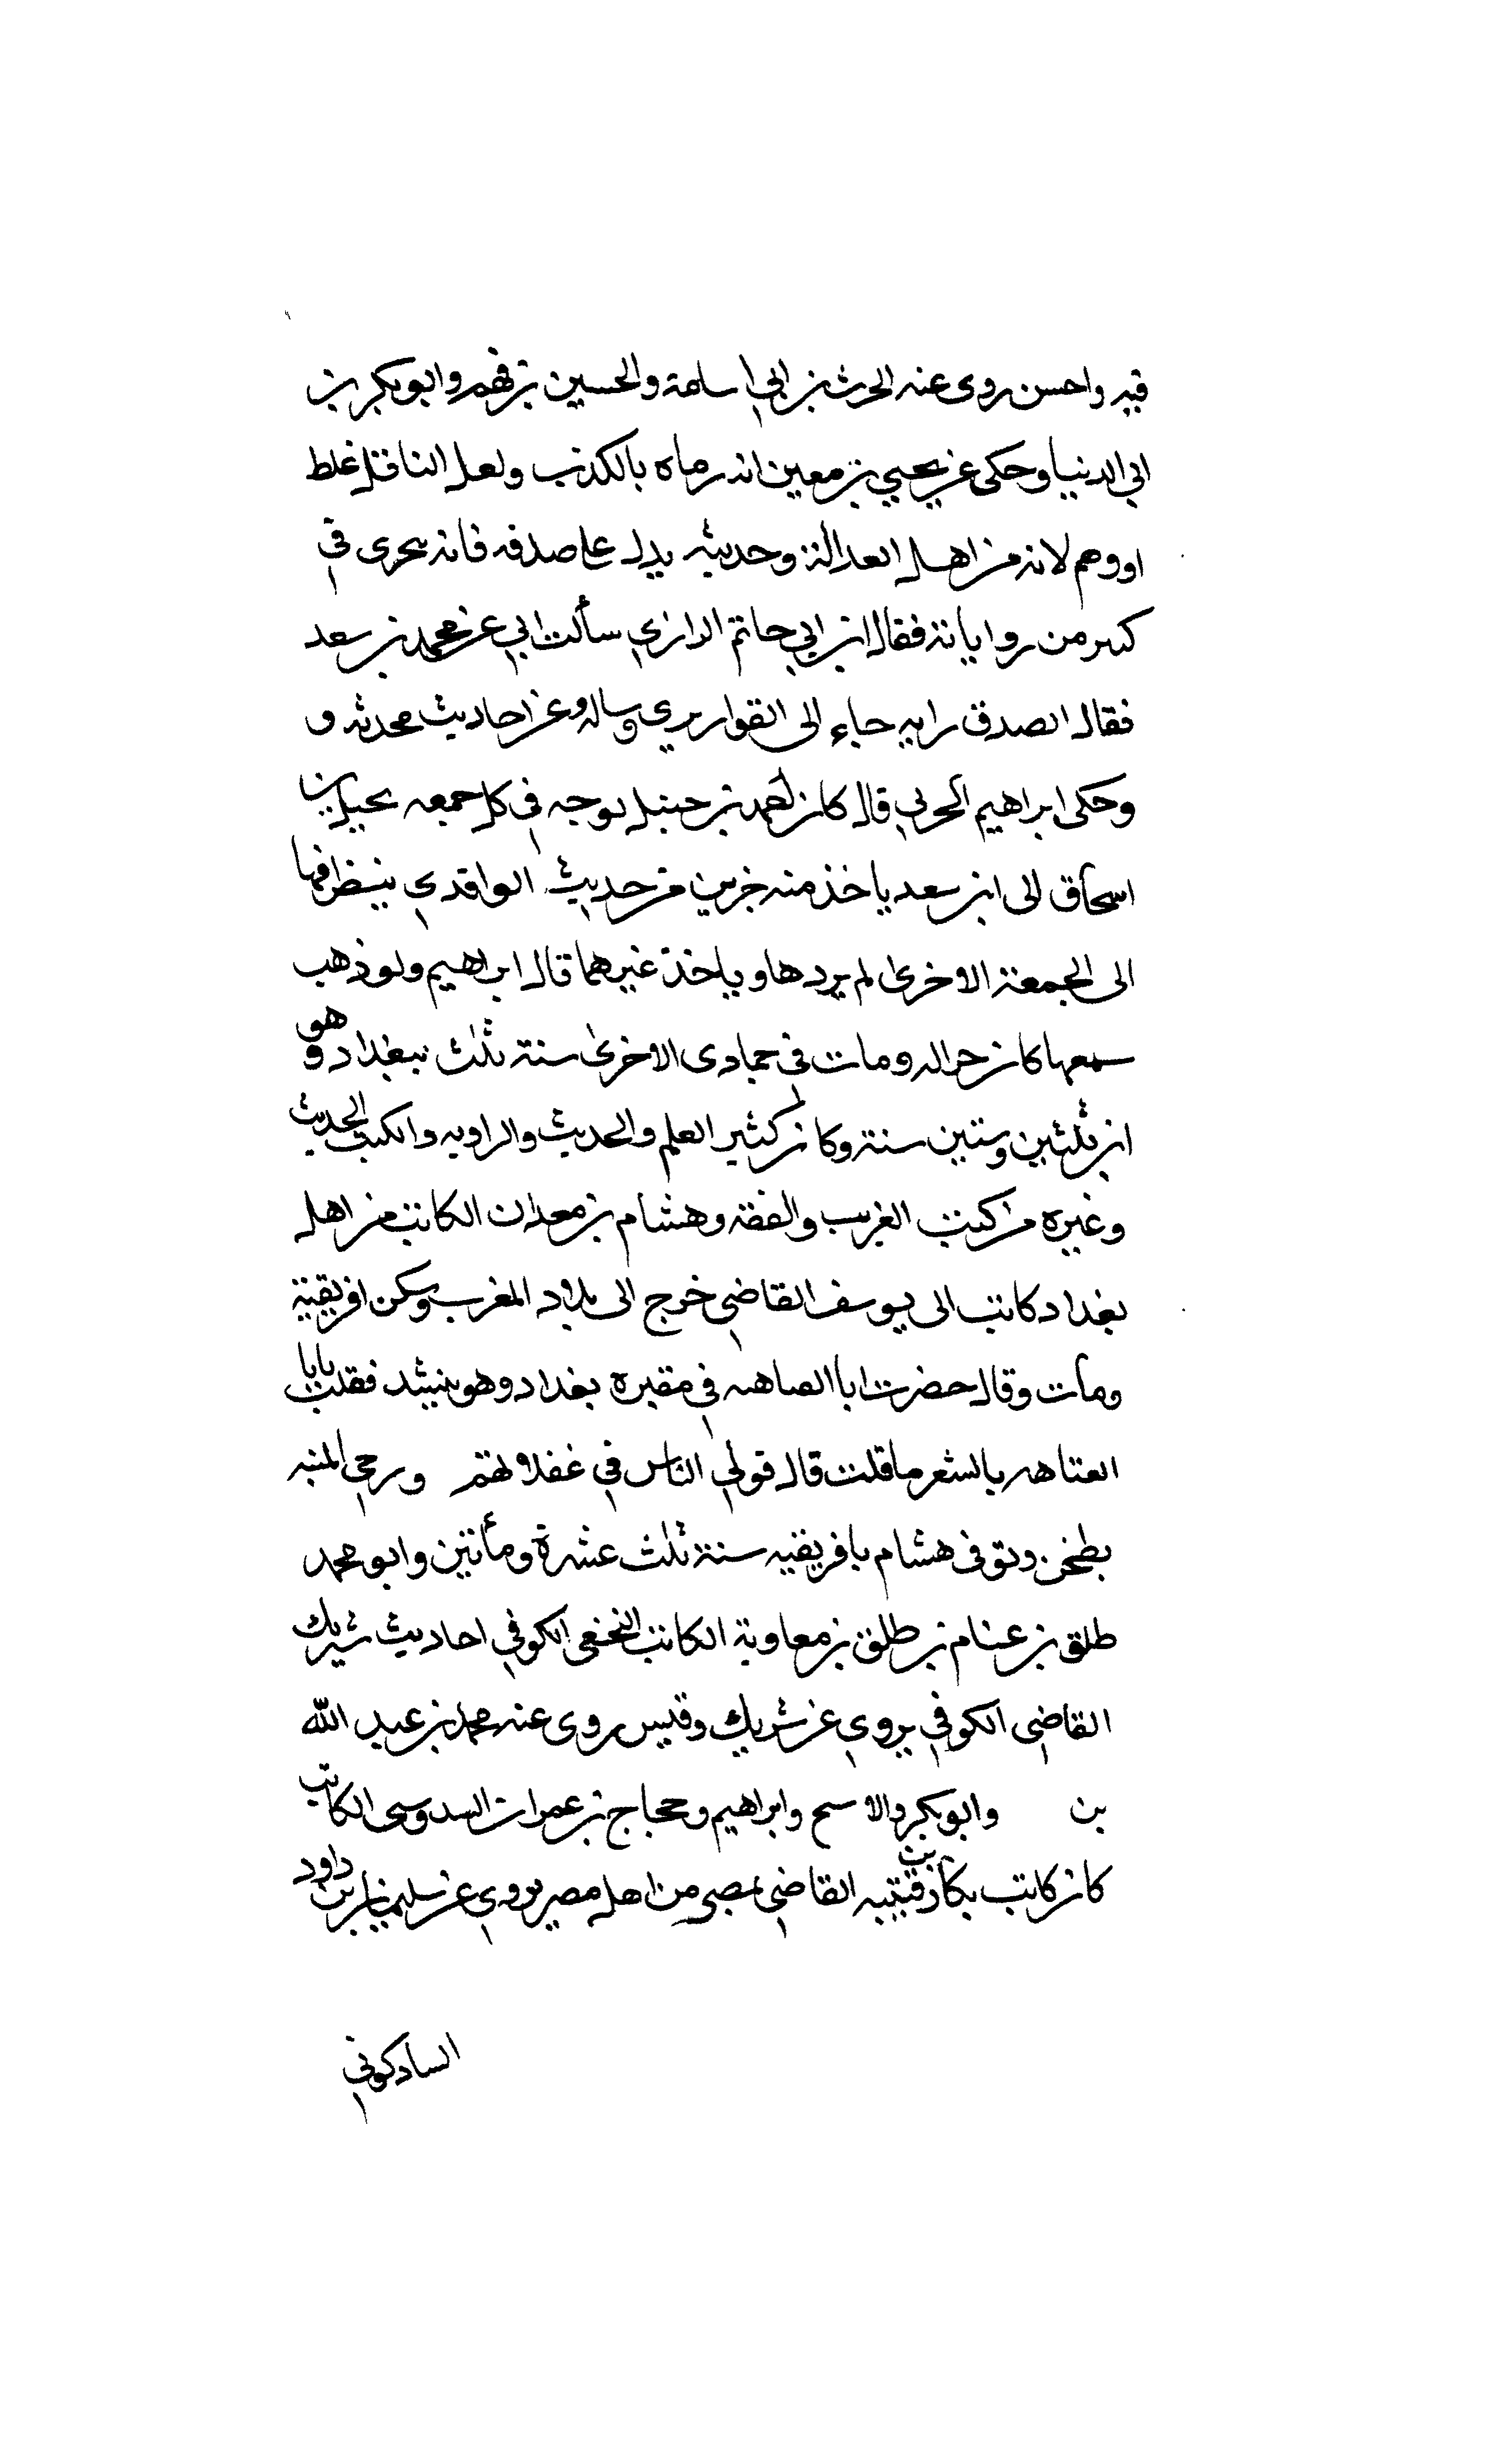 فيه واحسن روى عنه الحرث بن ابي اسامة والحسين بن فهم وابو بكر بن
ابي الدنيا وحكى عن يحيي بن معين انه رماه بالكذب ولعل الناقل غلط
او وهم لانه من اهل العدالة وحديثه يدل على صدقه فانه يحرى في
كثير من رواياته فقال ابن ابي حاتم الرازي سألت ابي عن محمد بن سعد
فقال الصدق رايه جاء الى القواريري وساله عن احاديث محدثه و
وحكى ابراهيم الحربي قال كان احمد بن حنبل يوجه في كل جمعه بحنبل بن
اسحاق الى ابن سعد ياخذ منه جزين من حديث الواقدي ينظر فيها
الى الجمعة الاخرى لم يردها وياخذ غيرهما قال ابراهيم ولو ذهب
سمعها كان خيرا له ومات في جمادى الاخرى سنة ثلث ببغداد وهو
ابن ثلثين وستين سنة وكان كثير العلم والحديث والراويه والكتب الحديث
وغيره من كتب الغريب والفقه وهشام بن معدان الكاتب من اهل
بغداد كاتب ابى يوسف القاضي خرج الى بلاد المغرب وسكن افريقية
ومات وقال حضرت ابا العتاهيه في مقبرة بغداد وهو ينشد فقلت يابا
العتاهيه بالشعر ما قلت قال قولي الناس في غفلاتهم ورحى المنيه
بطحن وتوفى هشام بافريقيه سنة ثلث عشرة ومأتين وابو محمد
طلق بن غنام بن طلق بن معاوية الكاتب النخعى الكوفي احاديث شريك
القاضي الكوفي يروي عن شريك وقيس روى عنه محمد بن عبد الله
بن وابو بكر والاسح وابراهيم وحجاج بن عمران السدوسى الكاتب
كان كاتب بكار بن قتيبه القاضي بمصر من اهل مصر يروي عن سليمان بن داود
الساذكوني